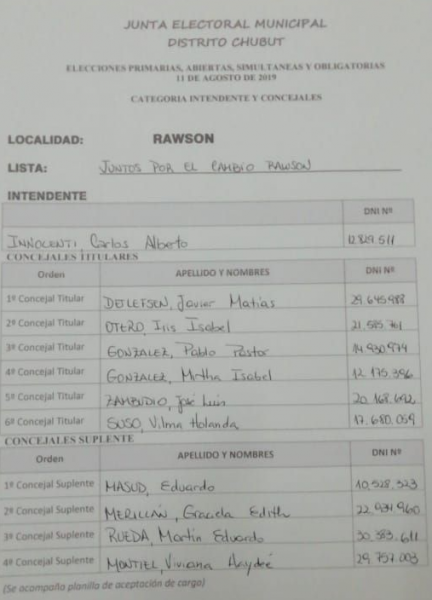 JUNTA ELECTORAL MUNICIPAL
DISTRITO CHUBUT
ELECCIONES PRIMARIAS, ABIERTAS, SIMULTANEAS Y OBLIGATORIAS
11 DE AGOSTO DE 2019
CATEGORIA INTENDENTE Y CONCEJALES
LOCALIDAD: RAWSON
LISTA: JUNTOS POR EL CAMBIO RAWSON
INTENDENTE
DNI Nº
INNOCENTI, Carlos Alberto 12.829.511
CONCEJALES TITULARES
Orden APELLIDO Y NOMBRES DNI Nº
1º Concejal Titular DETLEFSEN, Javier Matias 29.645.988
2º Concejal Titular OTERO, Iris Isabel 21.585.761
3º Concejal Titular GONZALEZ, Pablo Pastor 14.930.974
4º Concejal Titular GONZALEZ, Mirtha Isabel 12.175.396
5º Concejal Titular ZAMBUDIO, José Luis
6º Concejal Titular SUSO, Vilma Holanda 17.680.059
CONCEJALES SUPLENTE
Orden APELLIDO Y NOMBRES DNI Nº
1º Concejal Suplente MASUD, Eduardo 10.528.323
2º Concejal Suplente MERILLÁN, Graciela Edith 22.934.960
3º Concejal Suplente RUEDA, Martin Eduardo 30.383.611
4º Concejal Suplente MONTIEL, Viviana Haydeé 29.757.003
(Se acompaña planilla de aceptación de cargo)